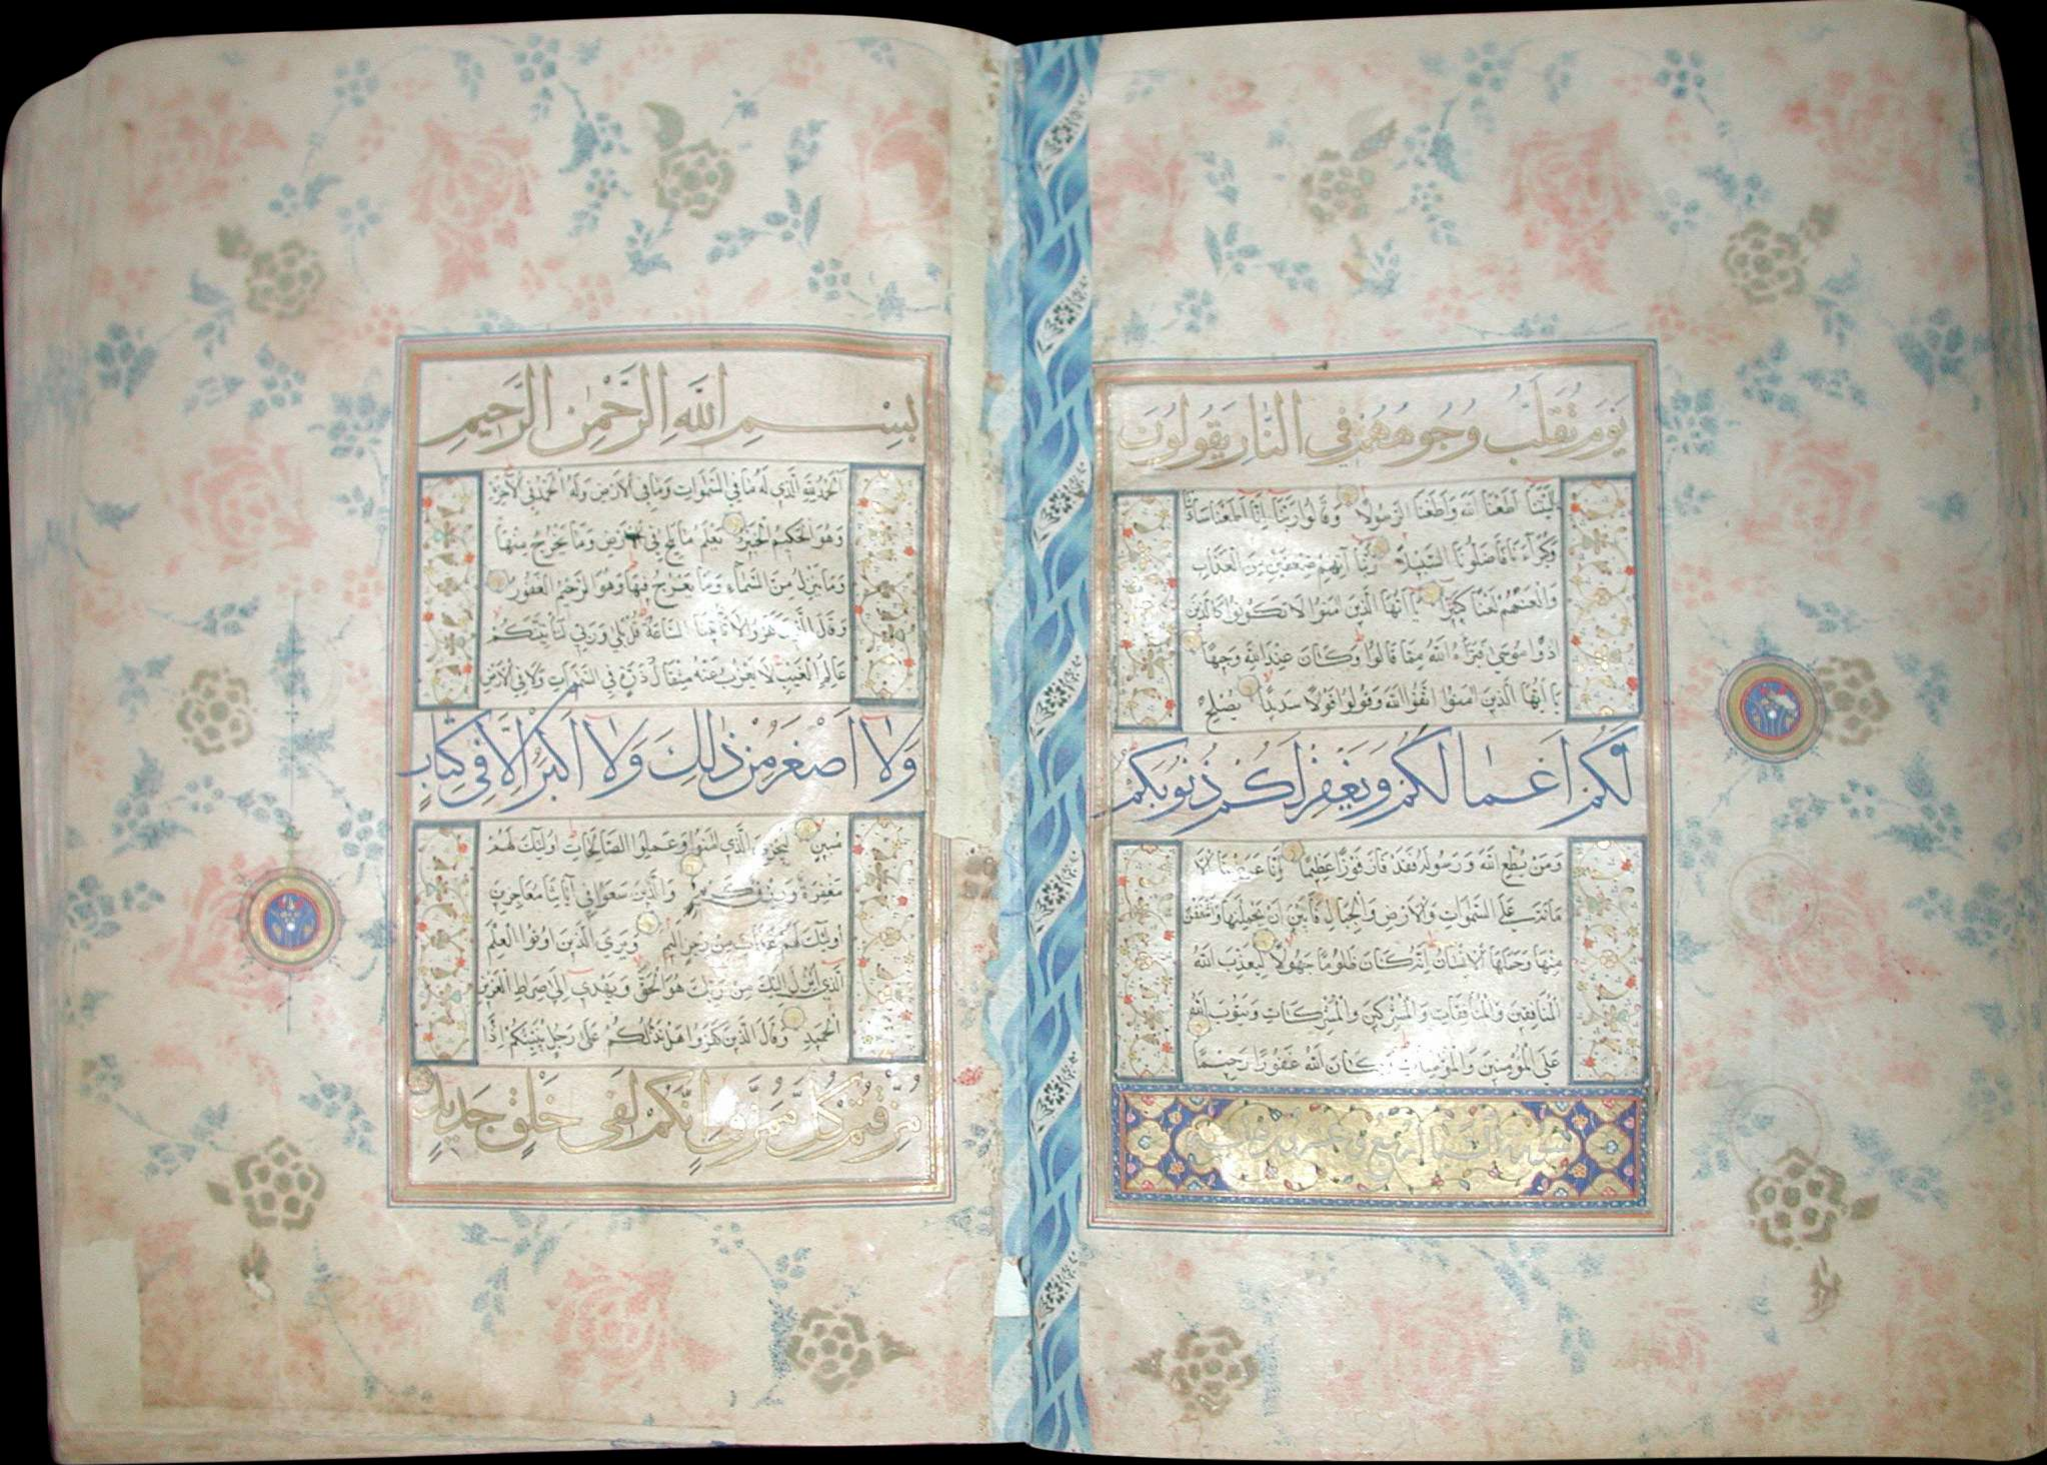 يَوْمَ تُقَلَّبُ وُجُوهُهُمْ فِي النَّارِ يَقُولُونَ
يَا لَيْتَنَا أَطَعْنَا اللَّهَ وَأَطَعْنَا الرَّسُولَا وَقَالُوا رَبَّنَا إِنَّا أَطَعْنَا سَادَتَنَا
وَكُبَرَاءَنَا فَأَضَلُّونَا السَّبِيلَا رَبَّنَا آتِهِمْ ضِعْفَيْنِ مِنَ الْعَذَابِ
وَالْعَنْهُمْ لَعْنًا كَبِيرًا يَا أَيُّهَا الَّذِينَ آمَنُوا لَا تَكُونُوا كَالَّذِينَ
آذَوْا مُوسَى فَبَرَّأَهُ اللَّهُ مِمَّا قَالُوا وَكَانَ عِنْدَ اللَّهِ وَجِيهًا
يَا أَيُّهَا الَّذِينَ آمَنُوا اتَّقُوا اللَّهَ وَقُولُوا قَوْلًا سَدِيدًا يُصْلِحْ
لَكُمْ أَعْمَالَكُمْ وَيَغْفِرْ لَكُمْ ذُنُوبَكُمْ
وَمَنْ يُطِعِ اللَّهَ وَرَسُولَهُ فَقَدْ فَازَ فَوْزًا عَظِيمًا إِنَّا عَرَضْنَا الْأَ
مَانَةَ عَلَى السَّمَوَاتِ وَالْأَرْضِ وَالْجِبَالِ فَأَبَيْنَ أَنْ يَحْمِلْنَهَا وَأَشْفَقْنَ
مِنْهَا وَحَمَلَهَا الْإِنْسَانُ إِنَّهُ كَانَ ظَلُومًا جَهُولًا لِيُعَذِّبَ اللَّهُ
الْمُنَافِقِينَ وَالْمُنَافِقَاتِ وَالْمُشْرِكِينَ وَالْمُشْرِكَاتِ وَيَتُوبَ اللَّهُ
عَلَى الْمُؤْمِنِينَ وَالْمُؤْمِنَاتِ وَكَانَ اللَّهُ غَفُورًا رَحِيمًا
بِسْمِ اللَّهِ الرَّحْمَٰنِ الرَّحِيمِ
الْحَمْدُ لِلَّهِ الَّذِي لَهُ مَا فِي السَّمَوَاتِ وَمَا فِي الْأَرْضِ وَلَهُ الْحَمْدُ فِي الْآخِرَةِ
وَهُوَ الْحَكِيمُ الْخَبِيرُ يَعْلَمُ مَا يَلِجُ فِي الْأَرْضِ وَمَا يَخْرُجُ مِنْهَا
وَمَا يَنْزِلُ مِنَ السَّمَاءِ وَمَا يَعْرُجُ فِيهَا وَهُوَ الرَّحِيمُ الْغَفُورُ
وَقَالَ الَّذِينَ كَفَرُوا لَا تَأْتِينَا السَّاعَةُ قُلْ بَلَى وَرَبِّي لَتَأْتِيَنَّكُمْ
عَالِمِ الْغَيْبِ لَا يَعْزُبُ عَنْهُ مِثْقَالُ ذَرَّةٍ فِي السَّمَوَاتِ وَلَا فِي الْأَرْضِ
وَلَا أَصْغَرُ مِنْ ذَٰلِكَ وَلَا أَكْبَرُ إِلَّا فِي كِتَابٍ
مُبِينٍ لِيَجْزِيَ الَّذِينَ آمَنُوا وَعَمِلُوا الصَّالِحَاتِ أُولَئِكَ لَهُمْ
مَغْفِرَةٌ وَرِزْقٌ كَرِيمٌ وَالَّذِينَ سَعَوْا فِي آيَاتِنَا مُعَاجِزِينَ
أُولَئِكَ لَهُمْ عَذَابٌ مِنْ رِجْزٍ أَلِيمٌ وَيَرَى الَّذِينَ أُوتُوا الْعِلْمَ
الَّذِي أُنْزِلَ إِلَيْكَ مِنْ رَبِّكَ هُوَ الْحَقَّ وَيَهْدِي إِلَى صِرَاطِ الْعَزِيزِ
الْحَمِيدِ وَقَالَ الَّذِينَ كَفَرُوا هَلْ نَدُلُّكُمْ عَلَى رَجُلٍ يُنَبِّئُكُمْ إِذَا
مُزِّقْتُمْ كُلَّ مُمَزَّقٍ إِنَّكُمْ لَفِي خَلْقٍ جَدِيدٍ